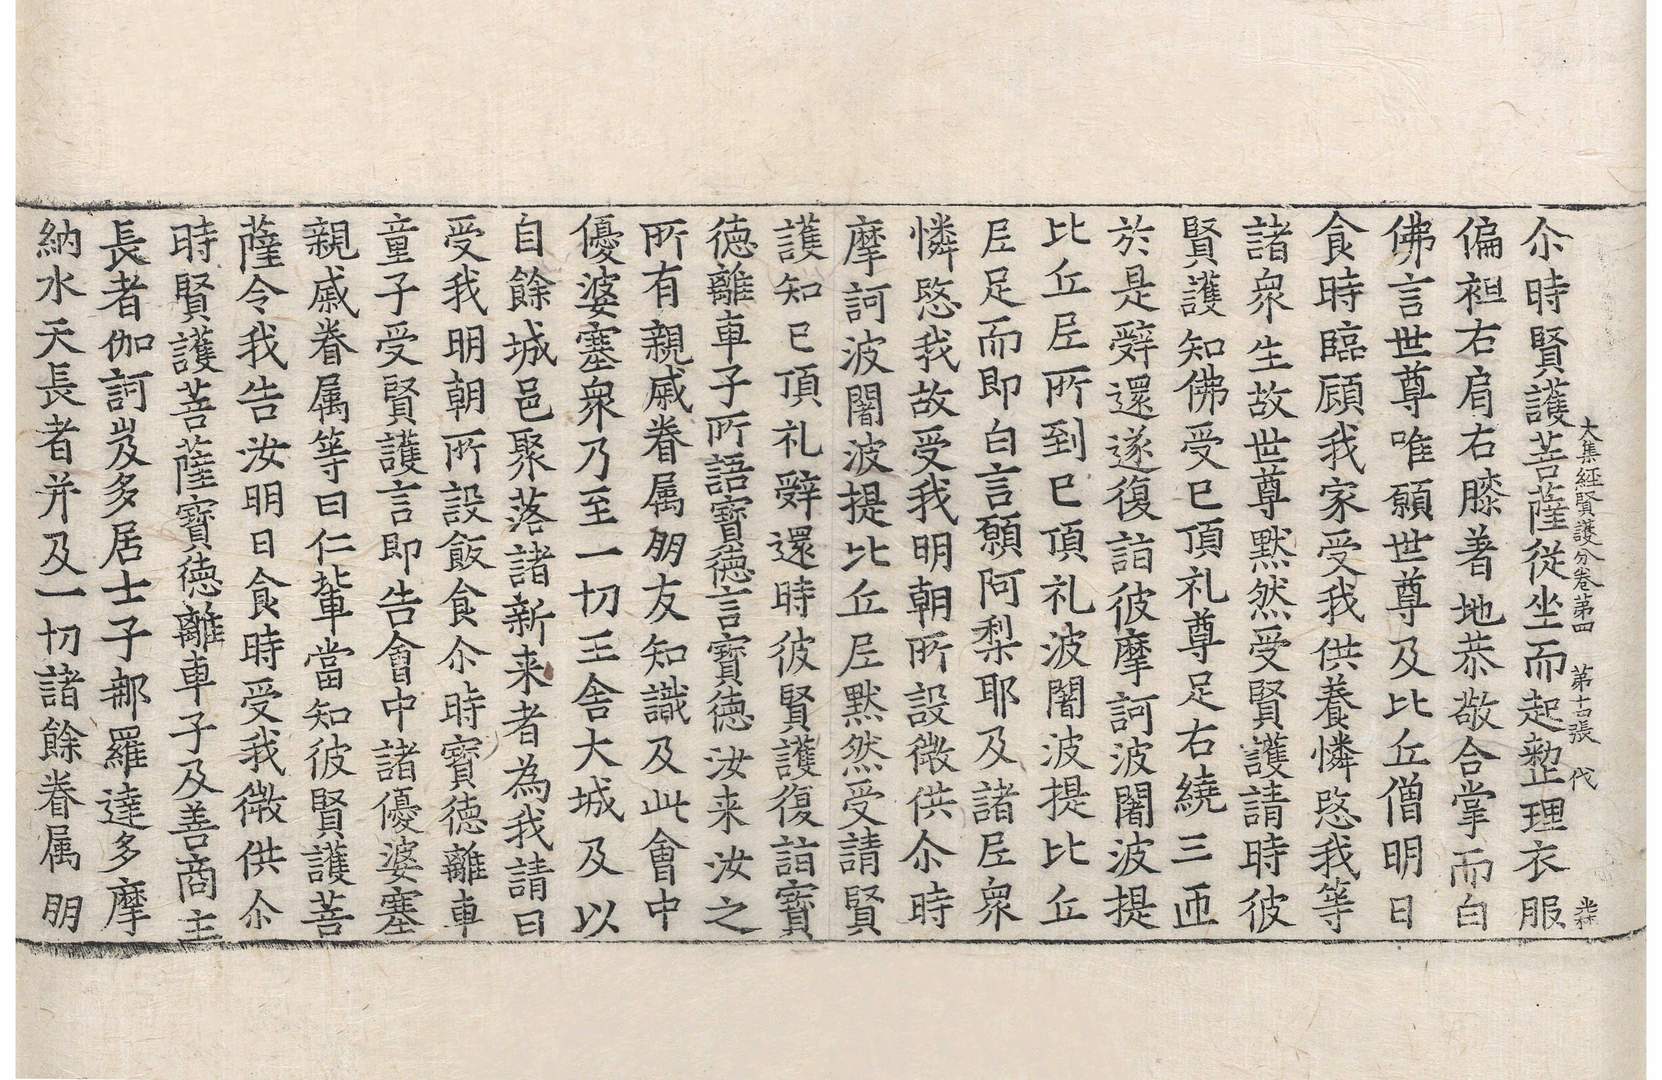 大集經賢護分卷第四　第十五張　代
尒時賢護菩薩從坐而起整理衣服
偏袒右肩右膝著地恭敬合掌而白
佛言世尊唯願世尊及比丘僧明日
食時臨顧我家受我供養憐愍我等
諸衆生故世尊默然受賢護請時彼
賢護知佛受已頂礼尊足右繞三匝
於是辤還遂復詣彼摩訶波闍波提
比丘𡰱所到已頂礼波闍波提比丘
𡰱足而即白言願阿梨耶及諸𡰱衆
憐愍我故受我明朝所設微供尒時
摩訶波闍波提比丘𡰱默然受請賢
護知已頂礼辤還時彼賢護復詣寳
德離車子所語寳德言寳德汝来汝之
所有親戚眷属朋友知識及此會中
優婆塞衆乃至一切王舍大城及以
自餘城邑聚落諸新来者為我請曰
受我明朝所設飯食尒時寳德離車
童子受賢護言即告會中諸優婆塞
親戚眷属等曰仁輩當知彼賢護菩
薩令我告汝明日食時受我微供尒
時賢護菩薩寳德離車子及善商主
長者伽訶岌多居士子那羅達多摩
納水天長者并及一切諸餘眷属朋